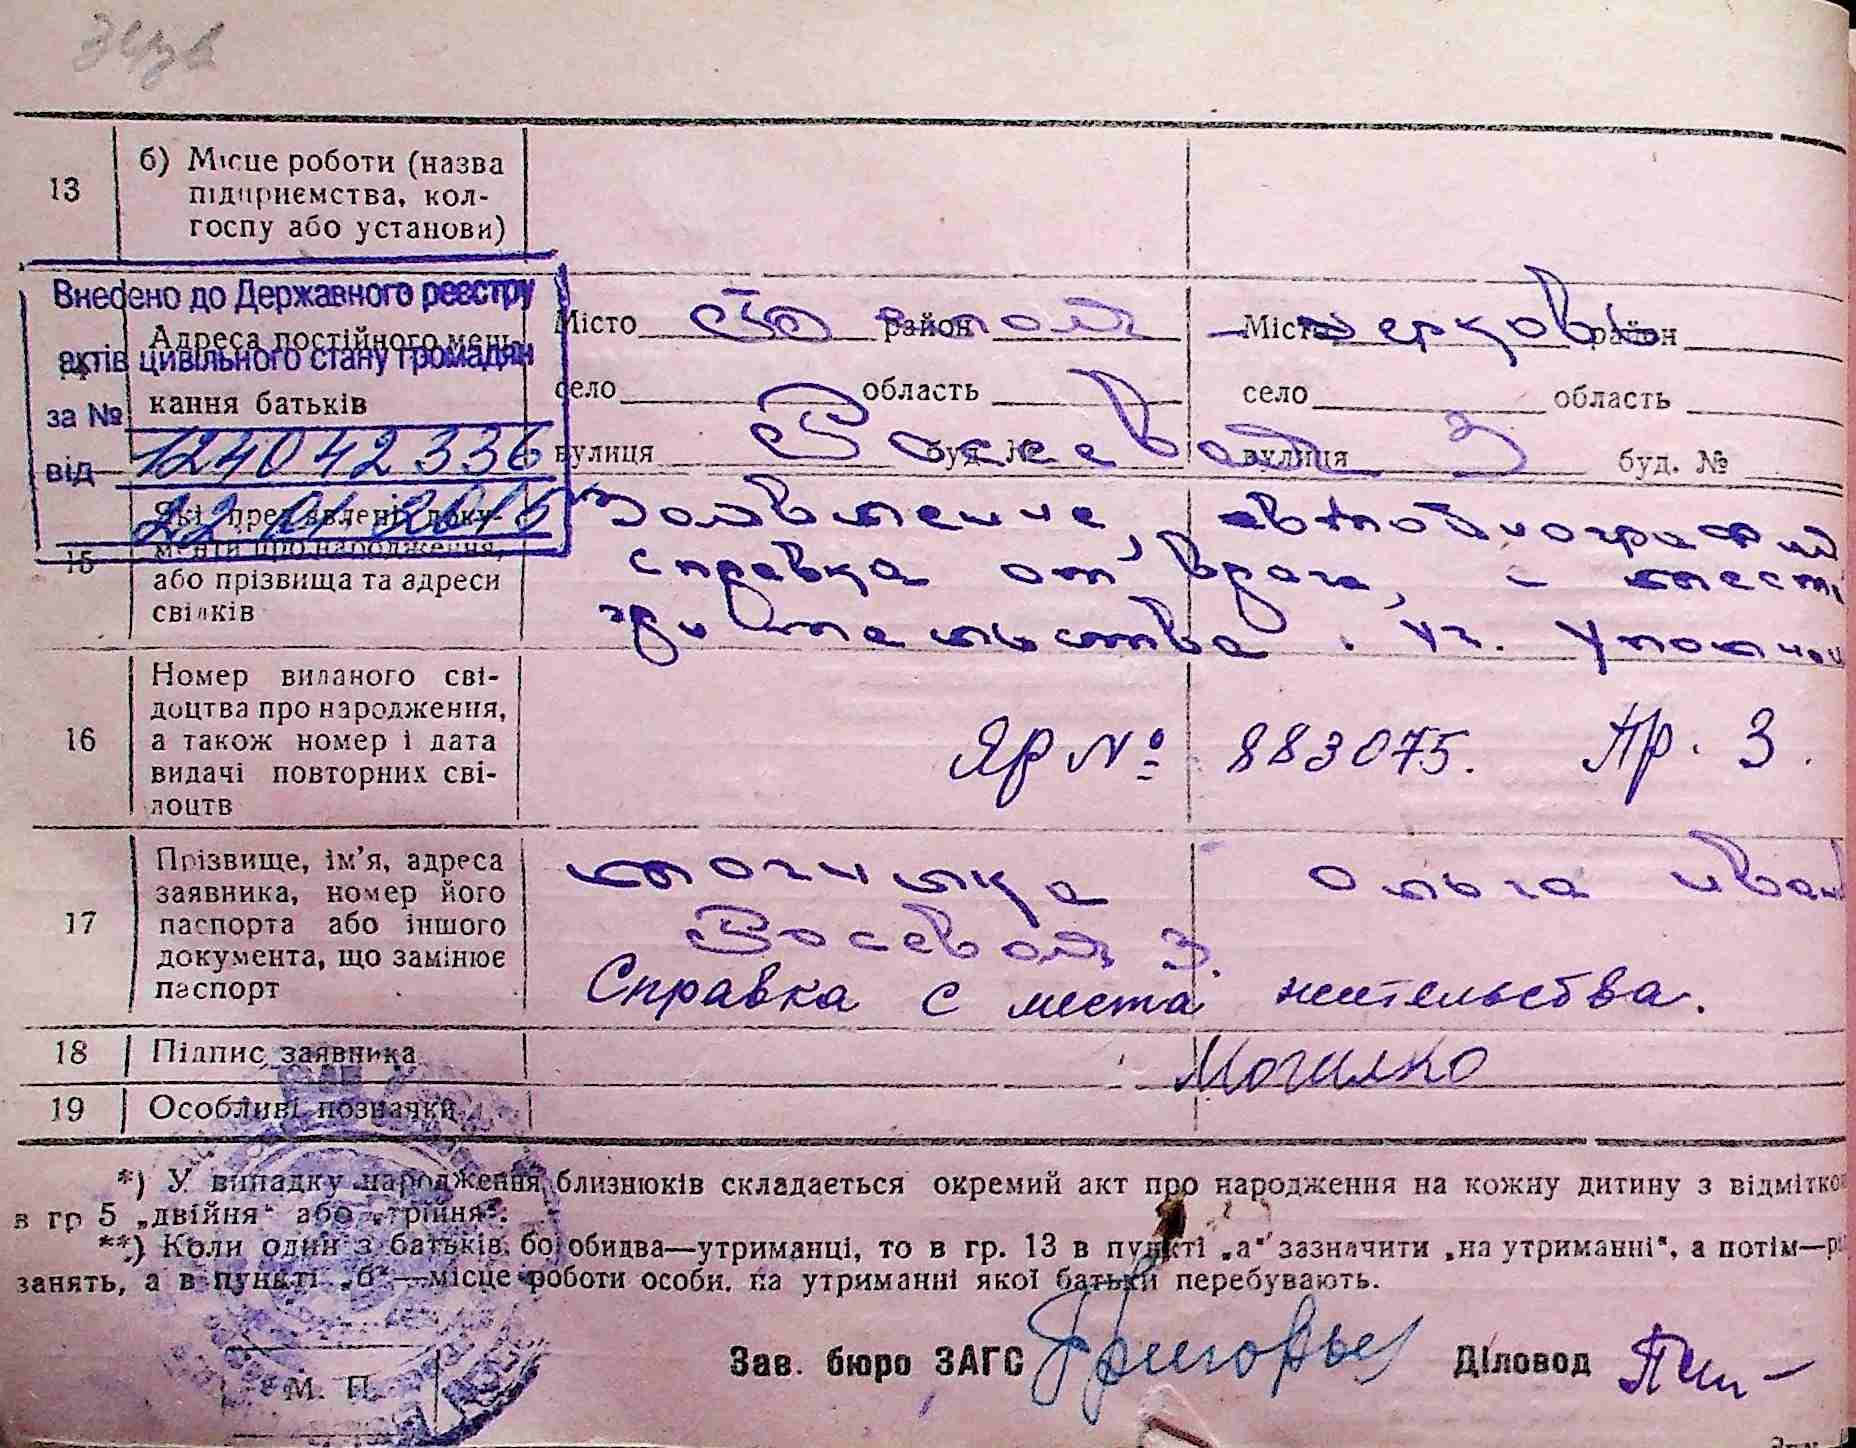 13
б) Місце роботи (назва
підприємства, кол-
госпу або установи)
Внесено до Державного реєстру
актів цивільного стану громадян
за № 124042336
від 22 01 2015
Адреса постійного меш-
кання батьків
Місто район
Місто район
село область
село область
вулиця буд. №
вулиця 3 буд. №
15
Які пред'явлені доку-
менти про народження,
або прізвища та адреси
свідків
справка от врача, с места
жительства
16
Номер виданого сві-
доцтва про народження,
а також номер і дата
видачі повторних сві-
доцтв
ЯР № 883075. Пр. 3.
17
Прізвище, ім'я, адреса
заявника, номер його
паспорта або іншого
документа, що замінює
паспорт
могилка ольга иван
3.
Справка с места жительства.
18
Підпис заявника
Могилко
19
Особливі позначки
*) У випадку народження близнюків складається окремий акт про народження на кожну дитину з відмітко
в гр 5 „двійня“ або „трійня“.
**) Коли один з батьків, бо обидва—утриманці, то в гр. 13 в пункті „а“ зазначити „на утриманні“, а потім—р
занять, а в пункті „б“—місце роботи особи, на утриманні якої батьки перебувають.
Зав. бюро ЗАГС Григорьев Діловод
М. П.